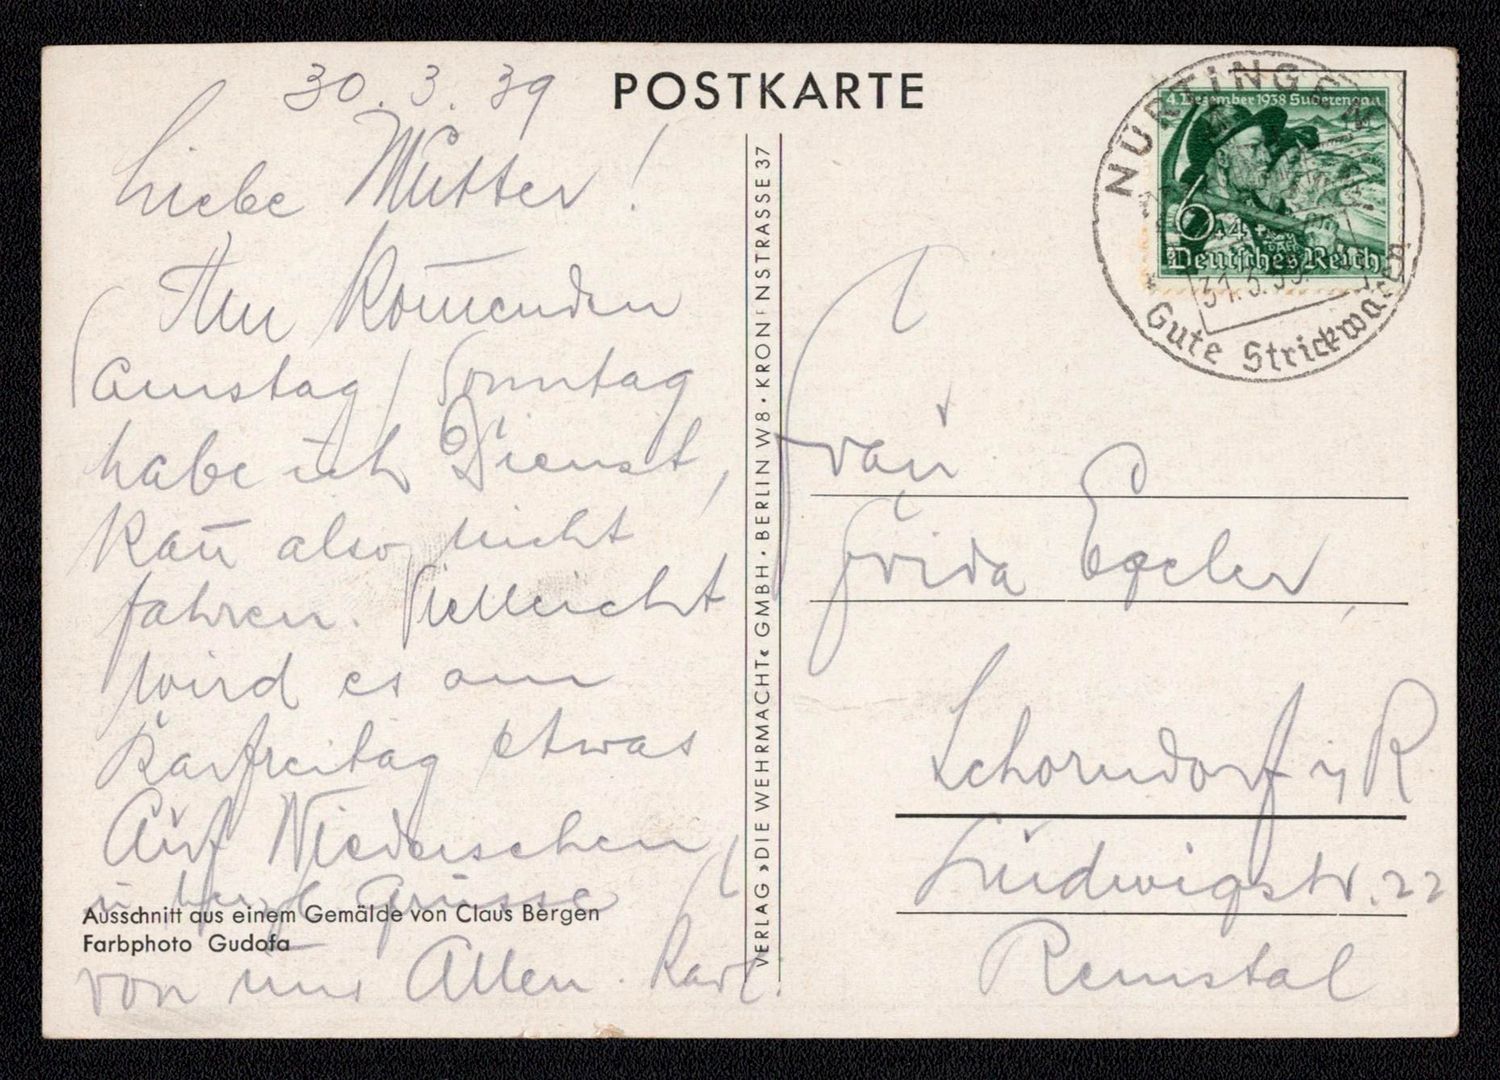 30. 3. 39
Liebe Mutter!
Am komenden
Samstag/Sonntag
habe ich Dienst,
kan̄ also nicht
fahren. Vielleicht
wird es am
Karfreitag etwas
Auf Wiedersehen
u herzl Grüsse
von uns Allen. Karl.
Ausschnitt aus einem Gemälde von Claus Bergen
Farbphoto Gudofa
VERLAG »DIE WEHRMACHT« GMBH · BERLIN W 8 · KRONENSTRASSE 37
POSTKARTE
NÜRTINGEN
4. Dezember 1938 Sudetengau
6+4
Deutsches Reich
Gute Strickwaren
Frau
Frida
Schorndorf i/R
Ludwigstr. 22
Remstal